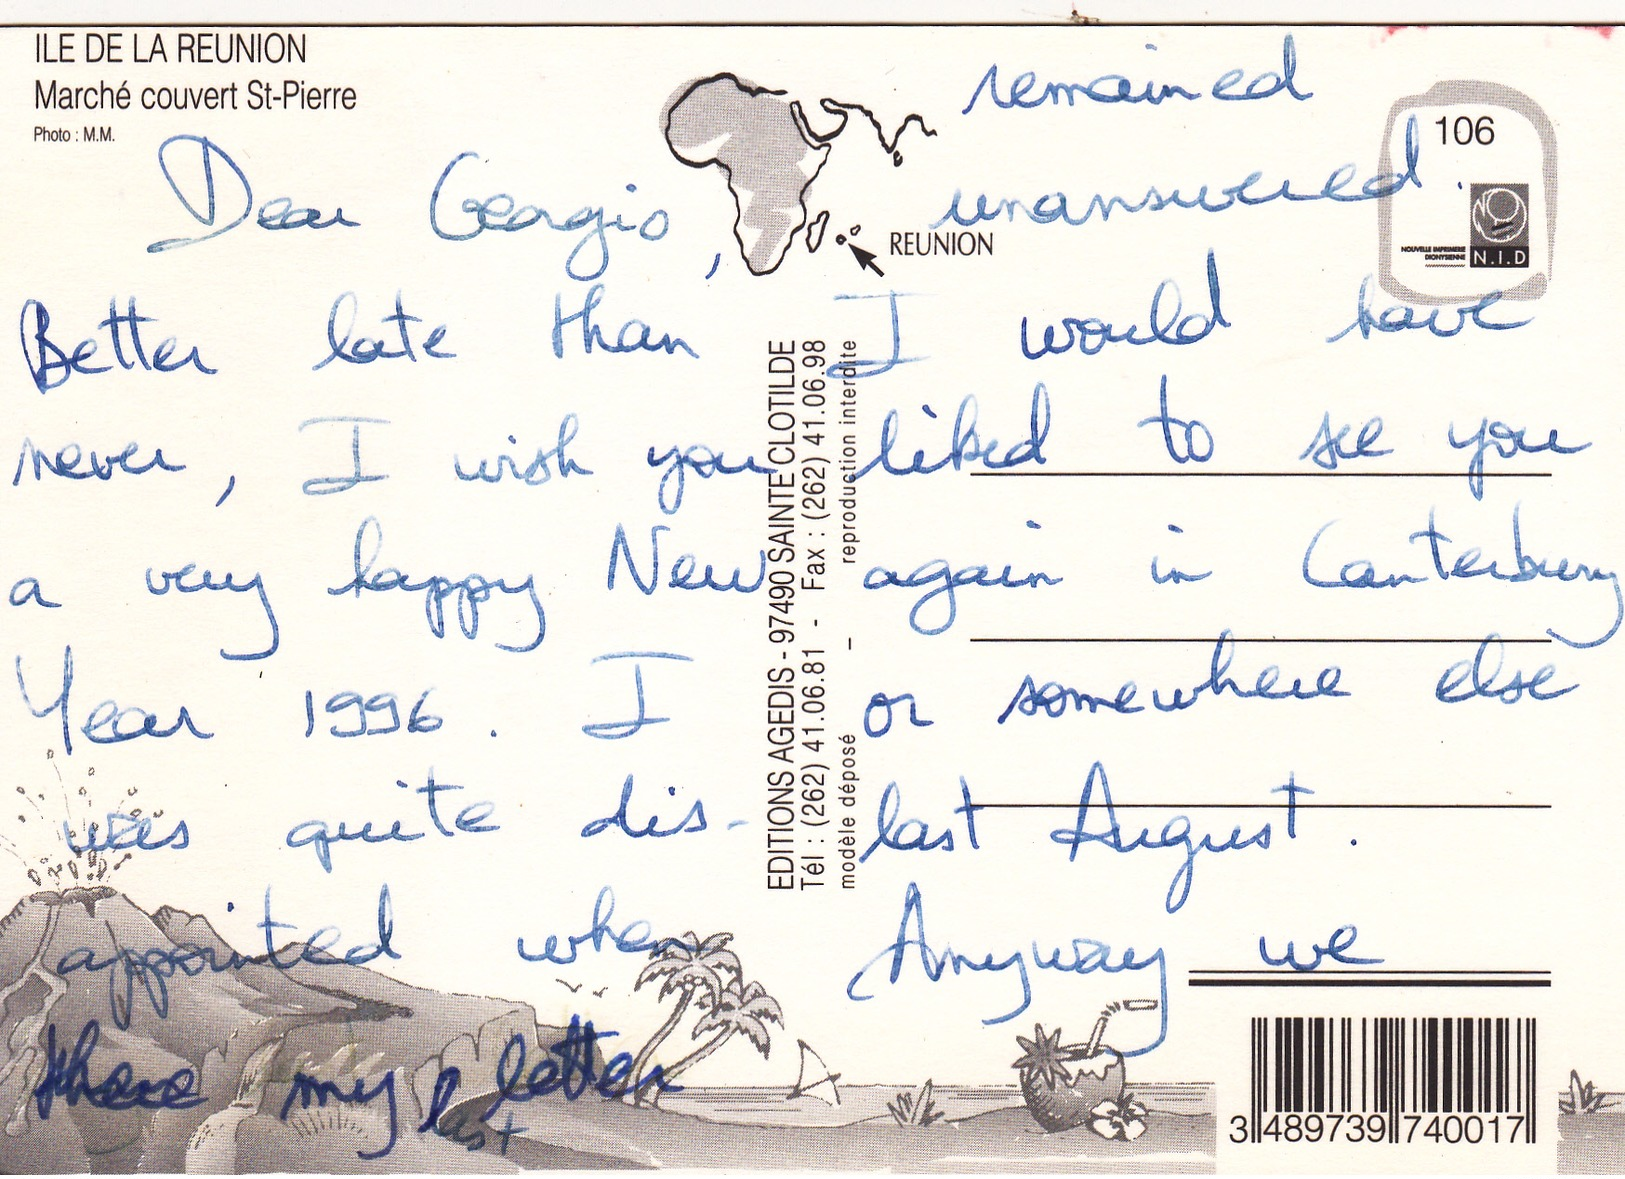 ILE DE LA REUNION
Marché couvert St-Pierre
Photo : M.M.
Dear Georgio,
Better late than
never, I wish you
a very happy New
Year 1996. I
was quite dis-
appointed when
there my letter
last
REUNION
EDITIONS AGEDIS - 97490 SAINTE CLOTILDE
Tél : (262) 41.06.81 - Fax : (262) 41.06.98
modèle déposé – reproduction interdite
106
NOUVELLE IMPRIMERIE
DIONYSIENNE
N.I.D
remained
unanswered.
I would have
liked to see you
again in Canterbury
or somewhere else
last August.
Anyway we
3 489739 740017